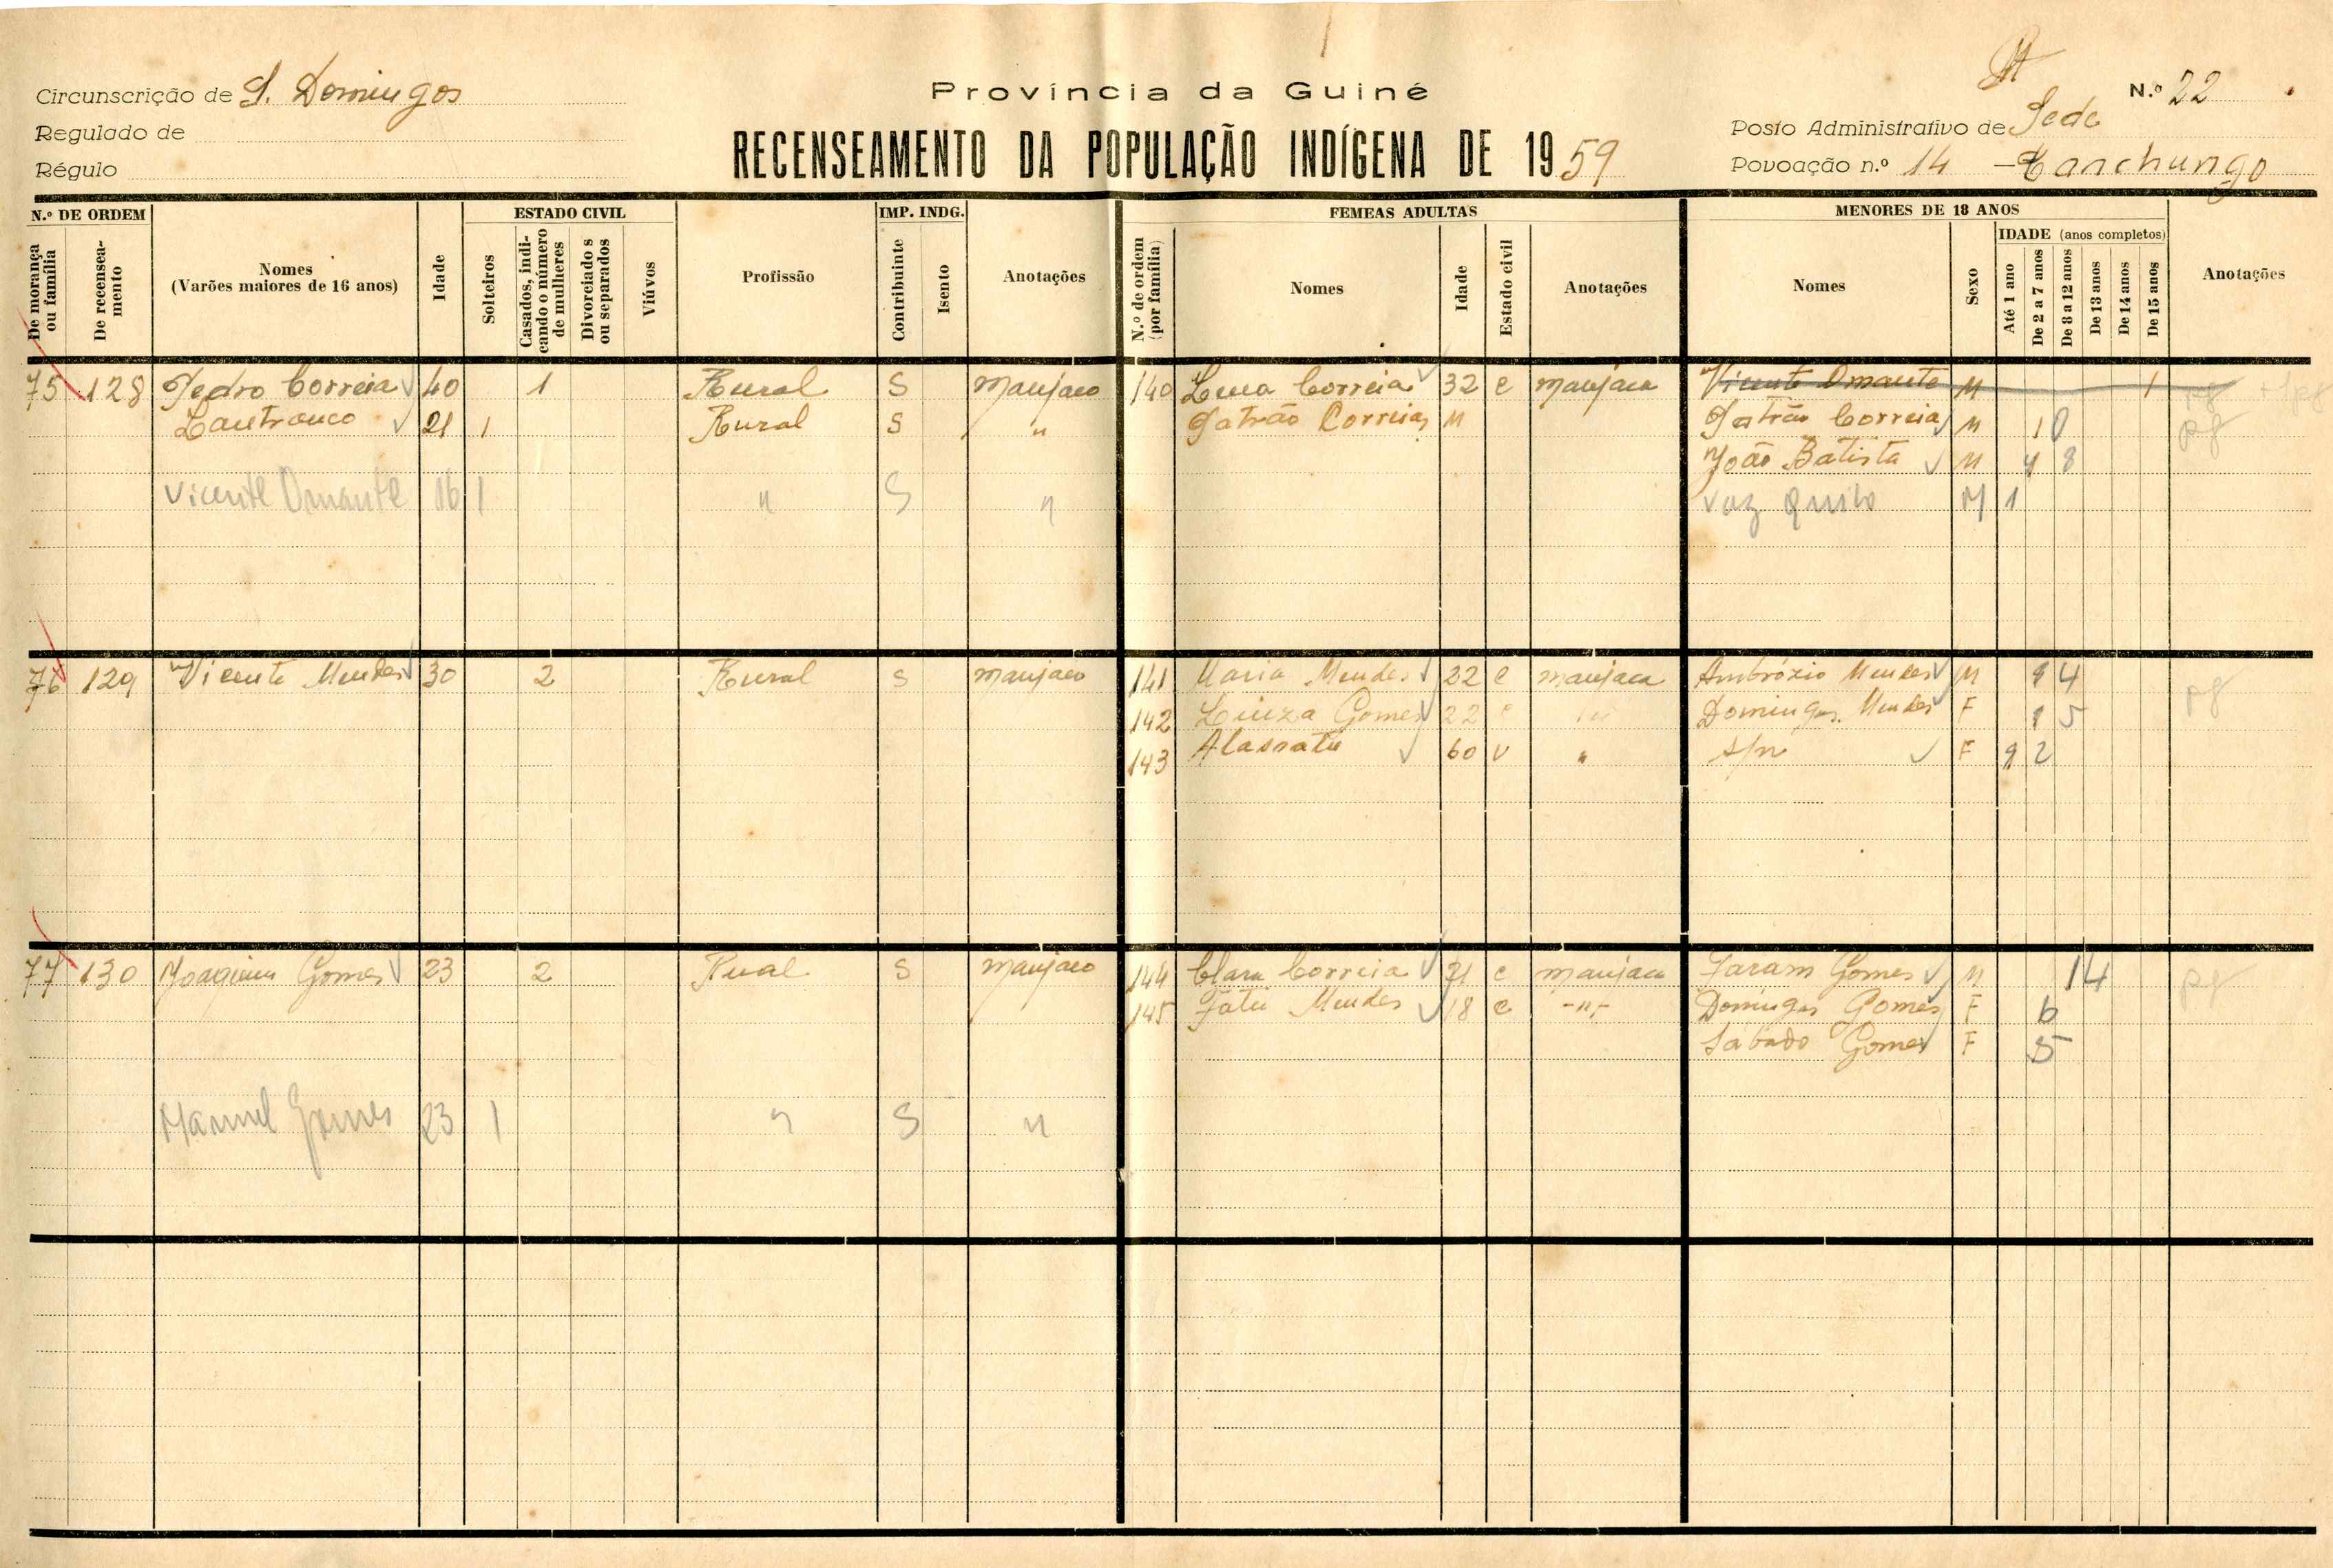 Circunscrição de S. Domingos
Regulado de
Régulo
Província da Guiné
RECENSEAMENTO DA POPULAÇÃO INDÍGENA DE 1959
N.º 22
Posto Administrativo de Sede
Povoação n.º 14 - Canchungo
N.º DE ORDEM
De morança ou família
De recenseamento
Nomes
(Varões maiores de 16 anos)
Idade
ESTADO CIVIL
Solteiros
Casados, indicando o número de mulheres
Divorciados ou separados
Viúvos
Profissão
IMP. INDG.
Contribuinte
Isento
Anotações
FEMEAS ADULTAS
N.º de ordem (por família)
Nomes
Idade
Estado civil
Anotações
MENORES DE 18 ANOS
Nomes
Sexo
IDADE (anos completos)
Até 1 ano
De 2 a 7 anos
De 8 a 12 anos
De 13 anos
De 14 anos
De 15 anos
Anotações
75 128 Pedro Correia 40 1 Rural S manjaco 140 Correia 32 c manjaca Vicente Omante M 1
21 1 Rural S " Patrão Correia M Patrão Correia M 10
João Batista M 4 8
Vicente Omante 16 1 " S " Vaz M 1
76 129 Vicente Mendes 30 2 Rural S manjaco 141 Maria Mendes 22 c manjaca Ambrózio Mendes M 4
142 Luiza Gomes 22 c Domingas Mendes F 5
143 60 v " s/n F 2
77 130 Joaquim Gomes 23 2 Rual S manjaco 144 Clara Correia 21 c manjaca Gomes M 14
145 Fatu Mendes 18 c -"- Domingas Gomes F 6
Sabado Gomes F 5
Manuel Gomes 23 1 " S "